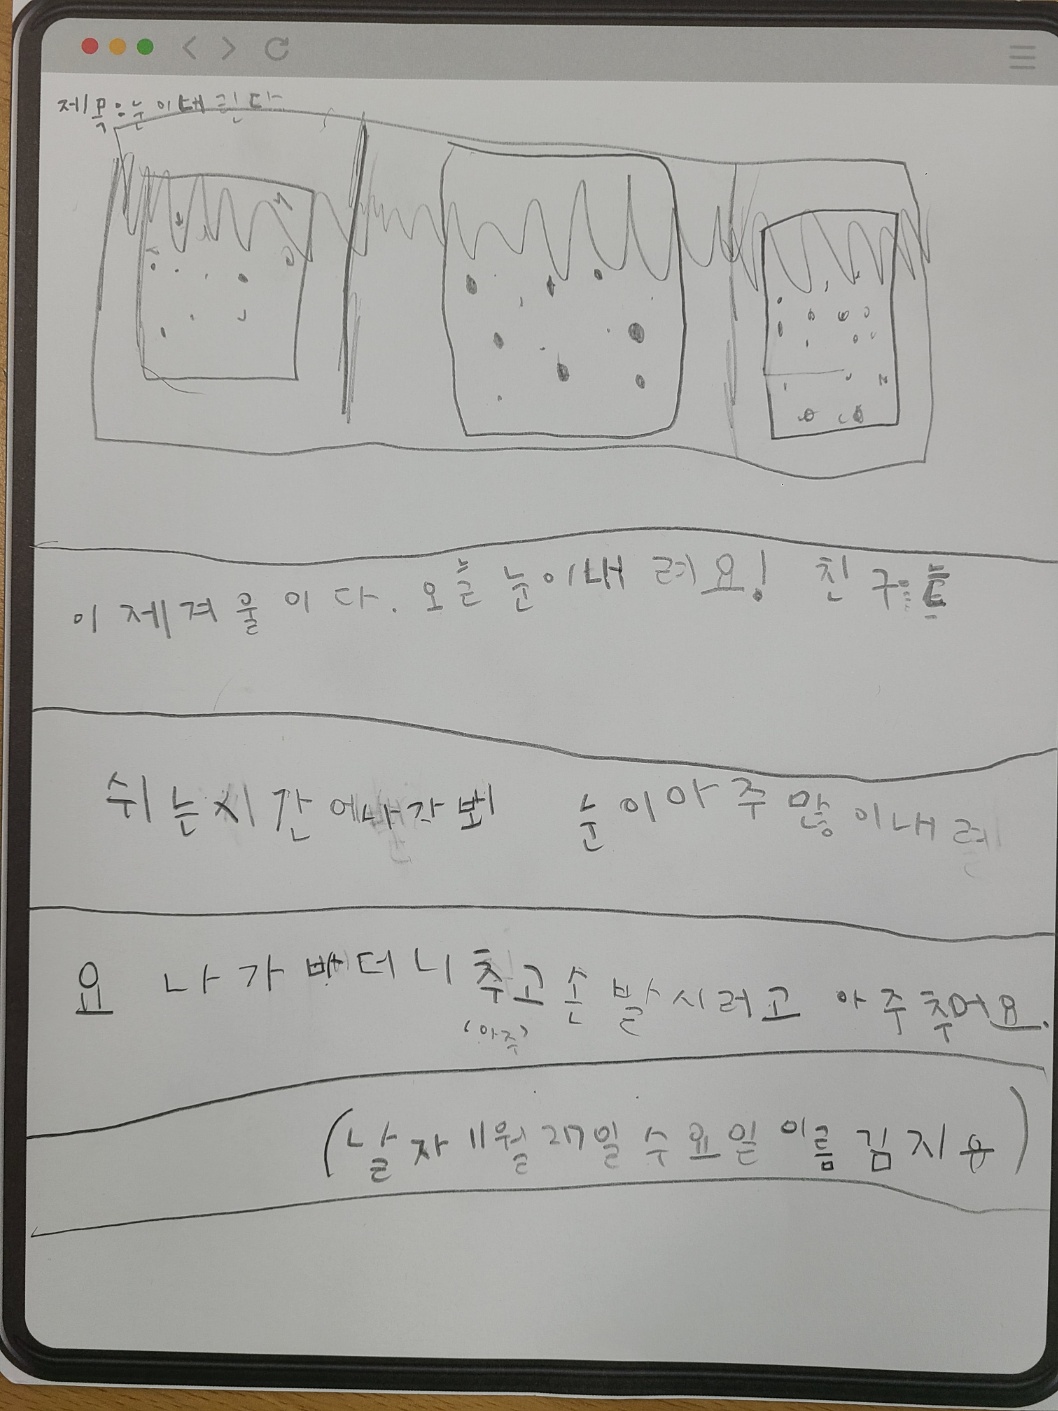 제목:눈이내린다
이제겨울이다. 오늘 눈이내려요! 친구들
쉬는시간에 눈이아주많이내려
요 나가 더니 춥고손발시려고 아주추어요.
(아주)
(날자 11월 27일 수요일 이름 김지용)